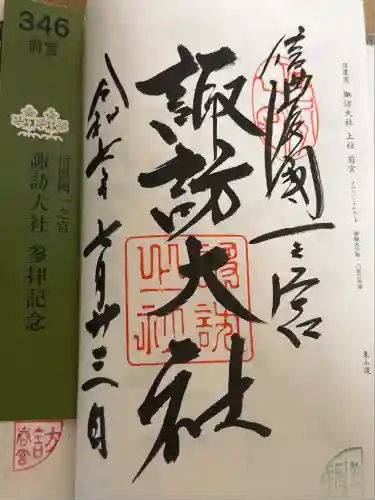 信濃國 諏訪大社 上社 前宮
東山道
信濃國一之宮
諏訪大社
令和七年七月廿三日
諏訪大社
346
前宮
信濃國一之宮
諏訪大社 参拝記念
諏訪
前宮